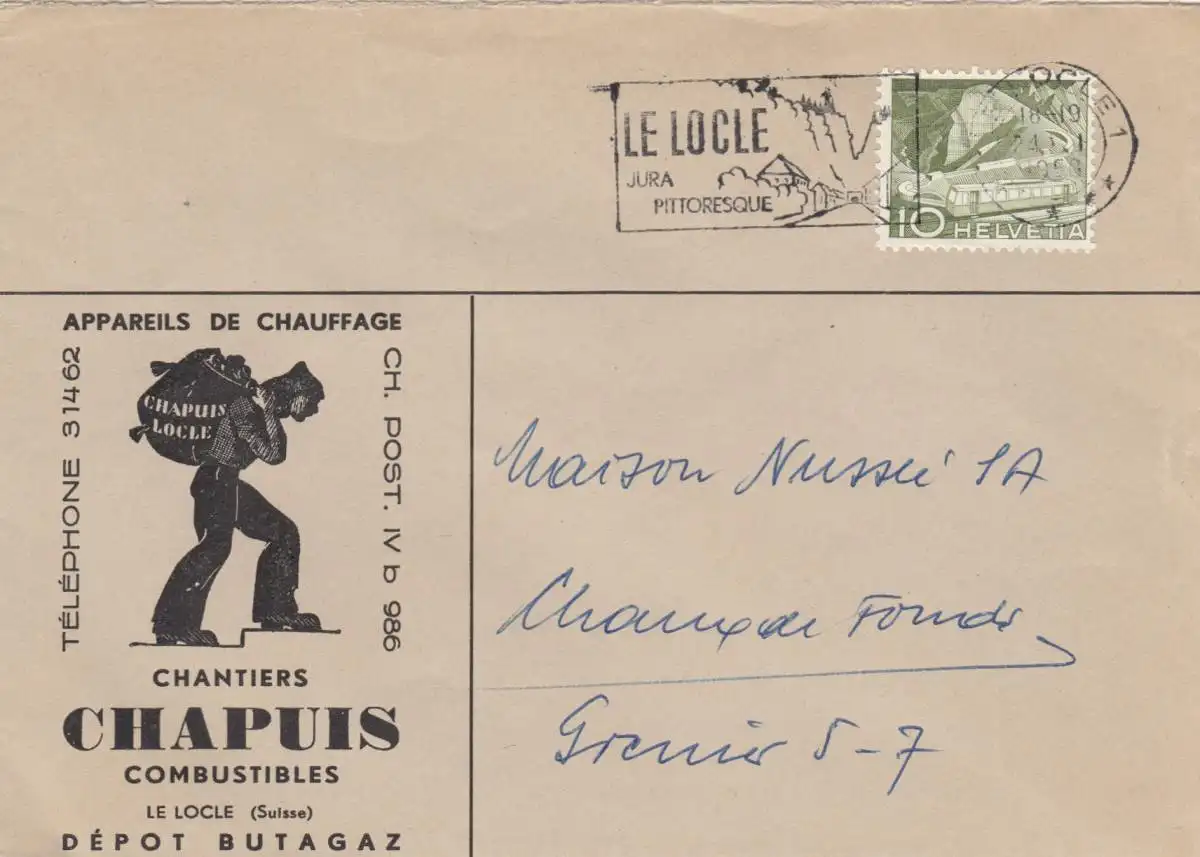 LE LOCLE
JURA
PITTORESQUE
LOCLE 1
18-19
10 HELVETIA
APPAREILS DE CHAUFFAGE
TÉLÉPHONE 31462
CHAPUIS
LOCLE
CH. POST. IV b 986
CHANTIERS
CHAPUIS
COMBUSTIBLES
LE LOCLE (Suisse)
DÉPOT BUTAGAZ
Maison Nusslé SA
Chaux de Fonds
Grenier 5-7